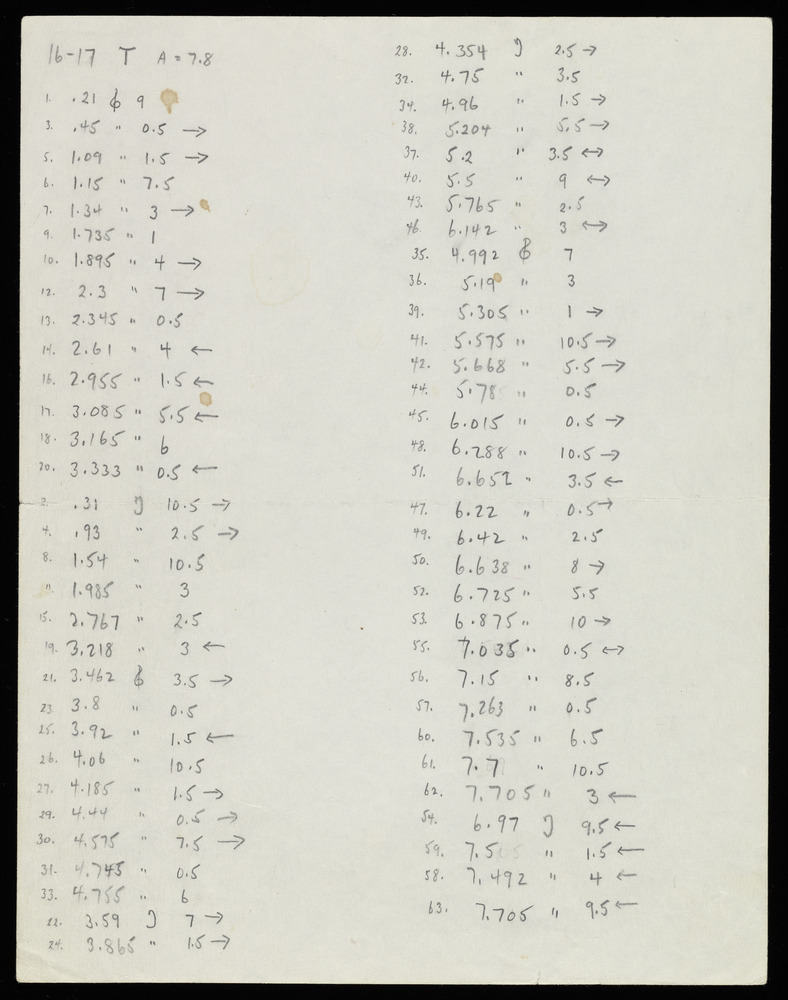 16-17 T A = 7.8
1. .21 𝄞 9
3. .45 " 0.5 →
5. 1.09 " 1.5 →
6. 1.15 " 7.5
7. 1.34 " 3 →
9. 1.735 " 1
10. 1.895 " 4 →
12. 2.3 " 7 →
13. 2.345 " 0.5
14. 2.61 " 4 ←
16. 2.955 " 1.5 ←
17. 3.085 " 5.5 ←
18. 3.165 " 6
20. 3.333 " 0.5 ←
2. .31 𝄢 10.5 →
4. .93 " 2.5 →
8. 1.54 " 10.5
11. 1.985 " 3
15. 2.767 " 2.5
19. 3.218 " 3 ←
21. 3.462 𝄞 3.5 →
23. 3.8 " 0.5
25. 3.92 " 1.5 ←
26. 4.06 " 10.5
27. 4.185 " 1.5 →
29. 4.44 " 0.5 →
30. 4.575 " 7.5 →
31. 4.745 " 0.5
33. 4.755 " 6
22. 3.59 𝄢 7 →
24. 3.865 " 1.5 →
28. 4.354 𝄢 2.5 →
32. 4.75 " 3.5
34. 4.96 " 1.5 →
38. 5.204 " 5.5 →
37. 5.2 " 3.5 ↔
40. 5.5 " 9 ↔
43. 5.765 " 2.5
46. 6.142 " 3 ↔
35. 4.992 𝄞 7
36. 5.19 " 3
39. 5.305 " 1 →
41. 5.575 " 10.5 →
42. 5.668 " 5.5 →
44. 5.78 " 0.5
45. 6.015 " 0.5 →
48. 6.288 " 10.5 →
51. 6.652 " 3.5 ←
47. 6.22 " 0.5 →
49. 6.42 " 2.5
50. 6.638 " 8 →
52. 6.725 " 5.5
53. 6.875 " 10 →
55. 7.035 " 0.5 ↔
56. 7.15 " 8.5
57. 7.263 " 0.5
60. 7.535 " 6.5
61. 7.7 " 10.5
62. 7.705 " 3 ←
54. 6.97 𝄢 9.5 ←
59. 7.505 " 1.5 ←
58. 7.492 " 4 ←
63. 7.705 " 9.5 ←